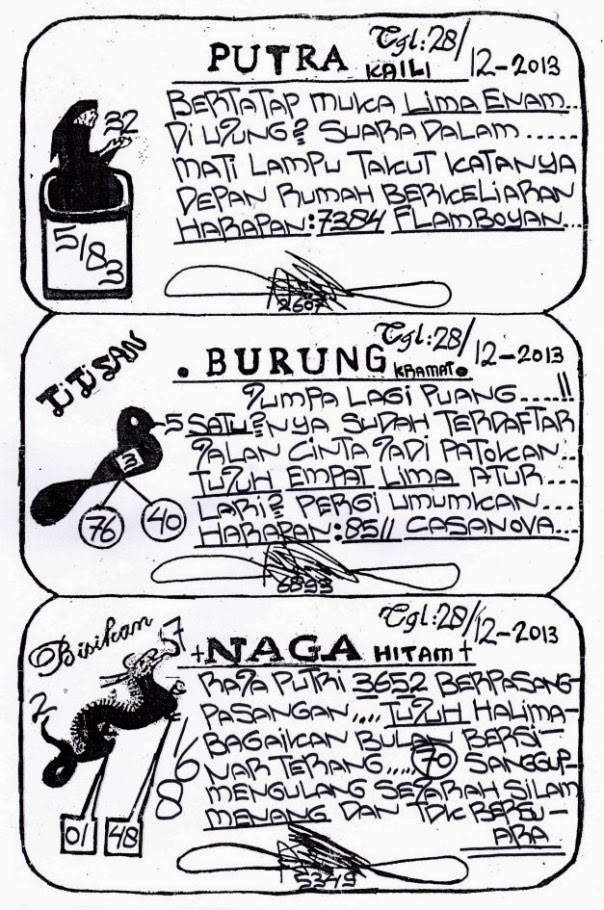 PUTRA
KAILI
Tgl: 28/12-2013
BERTATAP MUKA LIMA ENAM...
DI UJUNG² SUARA DALAM .....
MATI LAMPU TAKUT KATANYA
DEPAN RUMAH BERKELIARAN
HARAPAN: 7384 FLAMBOYAN...
32
5/8
3
2607
TITISAN
BURUNG
KRAMAT.
Tgl: 28/12-2013
JUMPA LAGI PUANG....!!
SATU²NYA SUDAH TERDAFTAR
JALAN CINTA JADI PATOKAN..
TUJUH EMPAT LIMA ATUR...
LARI² PERGI UMUMKAN...
HARAPAN: 8511 CASANOVA...
5
3
76
40
6899
Bisikan
+NAGA HITAM+
Tgl: 28/12-2013
RAJA PUTRI 3652 BERPASANG-
PASANGAN.... TUJUH HALIMA-
BAGAIKAN BULAN BERSI-
NAR TERANG..... 70 SANGGUP
MENGULANG SEJARAH SILAM
MENANG DAN TDK BERSU-
ARA
57
2
1/6
8
01
48
5349